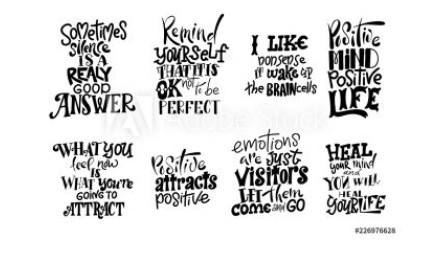 Sometimes
silence
IS A
REALY
GOOD
ANSWER
Remind
YOURSELF
THAT IT IS
OK not to be
PERFECT
I LIKE
nonsense
IT WAKE UP
the BRAIN cells
Positive
MIND
POSITIVE
LIFE
WHAT YOU
feel now
IS
WHAT YOU'RE
GOING TO
ATTRACT
Positive
attracts
positive
emotions
are just
VISITORS
LET THEM
COME and GO
HEAL
your mind
and
YOU WILL
HEAL
YOUR LIFE
Adobe Stock
#226976628